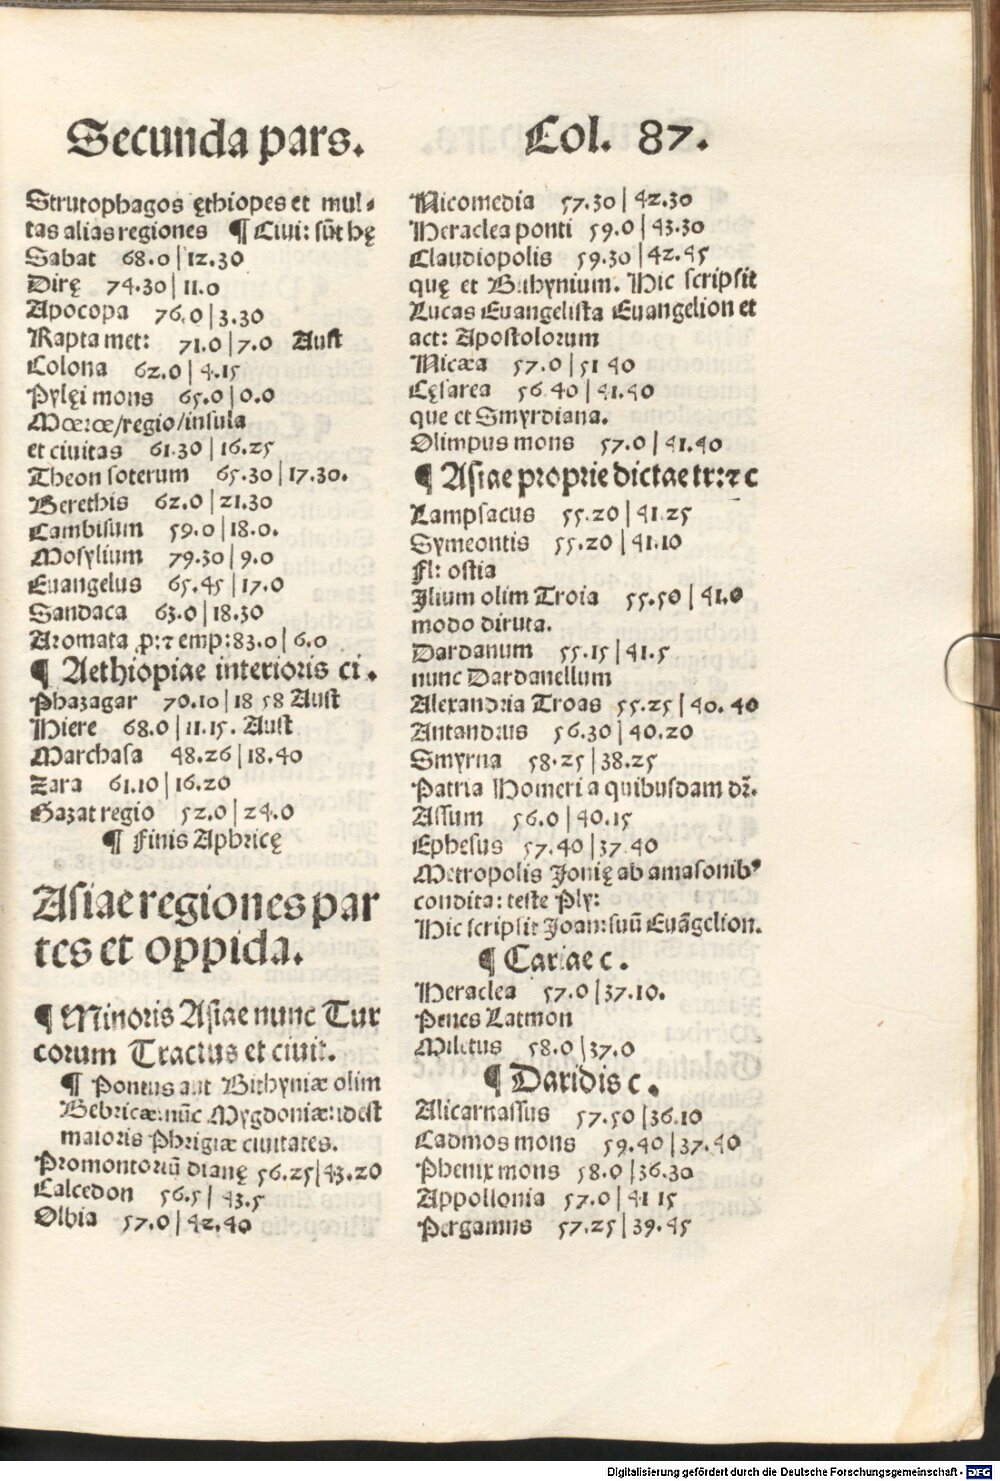 Secunda pars. Col. 87.
Strutophagos ęthiopes et mul⸗
tas alias regiones ¶ Ciui: sūt hę
Sabat 68.0 | 12.30
Dirę 74.30 | 11.0
Apocopa 76.0 | 3.30
Rapta met: 71.0 | 7.0 Aust
Colona 62.0 | 4.15
Pylęi mons 65.0 | 0.0
Mœrœ/regio/insula
et ciuitas 61.30 | 16.25
Theon soterum 65.30 | 17.30.
Berethis 62.0 | 21.30
Cambisum 59.0 | 18.0.
Mosylium 79.30 | 9.0
Euangelus 65.45 | 17.0
Sandaca 63.0 | 18.30
Aromata ꝓ:⁊ emp: 83.0 | 6.0
¶ Aethiopiae interioris ci.
Phazagar 70.10 | 18 58 Aust
Hiere 68.0 | 11.15. Aust
Marchasa 48.26 | 18.40
Zara 61.10 | 16.20
Gazat regio 52.0 | 24.0
¶ Finis Aphricę
Asiae regiones par
tes et oppida.
¶ Minoris Asiae nunc Tur
corum Tractus et ciuit.
¶ Pontus aut Bithyniæ olim
Bebricæ: nūc Mygdoniæ: idest
maioris Phrigiæ ciuitates.
Promontoriū dianę 56.25 | 43.20
Calcedon 56.5 | 43.5
Olbia 57.0 | 42.40
Nicomedia 57.30 | 42.30
Heraclea ponti 59.0 | 43.30
Claudiopolis 59.30 | 42.45
quę et Bithynium. Hic scripsit
Lucas Euangelista Euangelion et
act: Apostolorum
Nicæa 57.0 | 51 40
Cęsarea 56.40 | 41.40
que et Smyrdiana.
Olimpus mons 57.0 | 41.40
¶ Asiae proprie dictae tr: ⁊ c
Lampsacus 55.20 | 41.25
Symeontis 55.20 | 41.10
Fl: ostia
Ilium olim Troia 55.50 | 41.0
modo diruta.
Dardanum 55.15 | 41.5
nunc Dardanellum
Alexandria Troas 55.25 | 40. 40
Antandrus 56.30 | 40.20
Smyrna 58.25 | 38.25
Patria Homeri a quibusdam dr̄.
Assum 56.0 | 40.15
Ephesus 57.40 | 37 40
Metropolis Ionię ab amasonibꝰ
condita: teste Ply:
Hic scripsit Ioan: suū Euāgelion.
¶ Cariae c.
Heraclea 57.0 | 37.10.
Penes Latmon
Miletus 58.0 | 37.0
¶ Daridis c.
Alicarnassus 57.50 | 36.10
Cadmos mons 59.40 | 37.40
Phenix mons 58.0 | 36.30
Appollonia 57.0 | 41 15
Pergamus 57.25 | 39.45
Digitalisierung gefördert durch die Deutsche Forschungsgemeinschaft - DFG